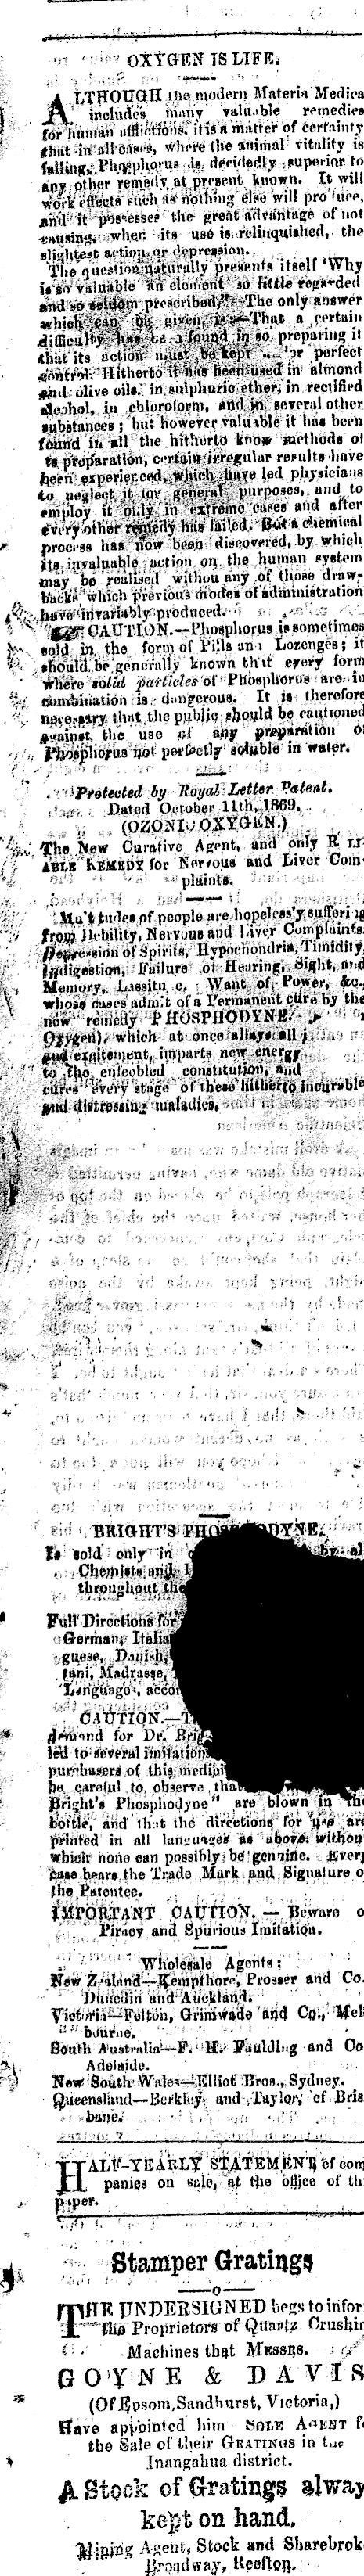 OXYGEN IS LIFE.
ALTHOUGH the modern Materia Medica
includes many valuable remedies
for human afflictions, it is a matter of certainty
that in all cases, where the animal vitality is
failing, Phosphorus is decidedly superior to
any other remedy at present known. It will
work effects such as nothing else will produce,
and it possesses the great advantage of not
causing, when its use is relinquished, the
slightest action or depression.
The question naturally presents itself 'Why
is so valuable an element so little regarded
and so seldom prescribed?' The only answer
which can be given is—That a certain
difficulty has been found in so preparing it
that its action must be kept perfect
control. Hitherto it has been used in almond
and olive oils, in sulphuric ether, in rectified
alcohol, in chloroform, and in several other
substances; but however valuable it has been
found in all the hitherto know methods of
preparation, certain irregular results have
been experienced, which have led physicians
to neglect it for general purposes, and to
employ it only in extreme cases and after
every other remedy has failed. But a chemical
process has now been discovered, by which
its invaluable action on the human system
may be realised without any of those draw-
backs which previous modes of administration
have invariably produced.
CAUTION.—Phosphorus is sometimes
sold in the form of Pills and Lozenges; it
should be generally known that every form
where solid particles of Phosphorus are in
combination is dangerous. It is therefore
necessary that the public should be cautioned
against the use of any preparation of
Phosphorus not perfectly soluble in water.
Protected by Royal Letter Patent.
Dated October 11th, 1869.
(OZONIC OXYGEN.)
The New Curative Agent, and only RELI-
ABLE REMEDY for Nervous and Liver Com-
plaints.
Multitudes of people are hopelessly suffering
from Debility, Nervous and Liver Complaints,
Depression of Spirits, Hypochondria, Timidity,
Indigestion, Failure of Hearing, Sight, and
Memory, Lassitude, Want of Power, &c.,
whose cases admit of a Permanent cure by the
new remedy PHOSPHODYNE
Oxygen), which at once allays all
and excitement, imparts new energy
to the enfeebled constitution, and
cures every stage of these hitherto incurable
and distressing maladies.
BRIGHT'S
Is sold only in
Chemists and
throughout the
Full Directions for
German, Italia
guese, Danish,
tani, Madrasse,
Languages, accom
CAUTION.—
demand for Dr.
led to several imitation
purchasers of this medici
be careful to observe tha
Bright's Phosphodyne" are blown in the
bottle, and that the directions for use are
printed in all languages as above, without
which none can possibly be genuine. Every
case bears the Trade Mark and Signature o
the Patentee.
IMPORTANT CAUTION. — Beware o
Piracy and Spurious Imitation.
Wholesale Agents:
New Zealand—Kempthore, Prosser and Co.
Dunedin and Auckland.
Victoria—Felton, Grimwade and Co., Mel
bourne.
South Australia—F. H. Faulding and Co
Adelaide.
New South Wales—Elliot Bros., Sydney.
Queensland—Berkley and Taylor, of Bris
bane.
HALF-YEARLY STATEMENTS of com
panies on sale, at the office of th
paper.
Stamper Gratings
—o—
THE UNDERSIGNED begs to infor
the Proprietors of Quartz Crushin
Machines that MESSRS.
GOYNE & DAVIS
(Of Epsom, Sandhurst, Victoria,)
Have appointed him SOLE AGENT f
the Sale of their GRATINGS in the
Inangahua district.
A Stock of Gratings alway
kept on hand.
Mining Agent, Stock and Sharebrok
Broadway, Reefton.